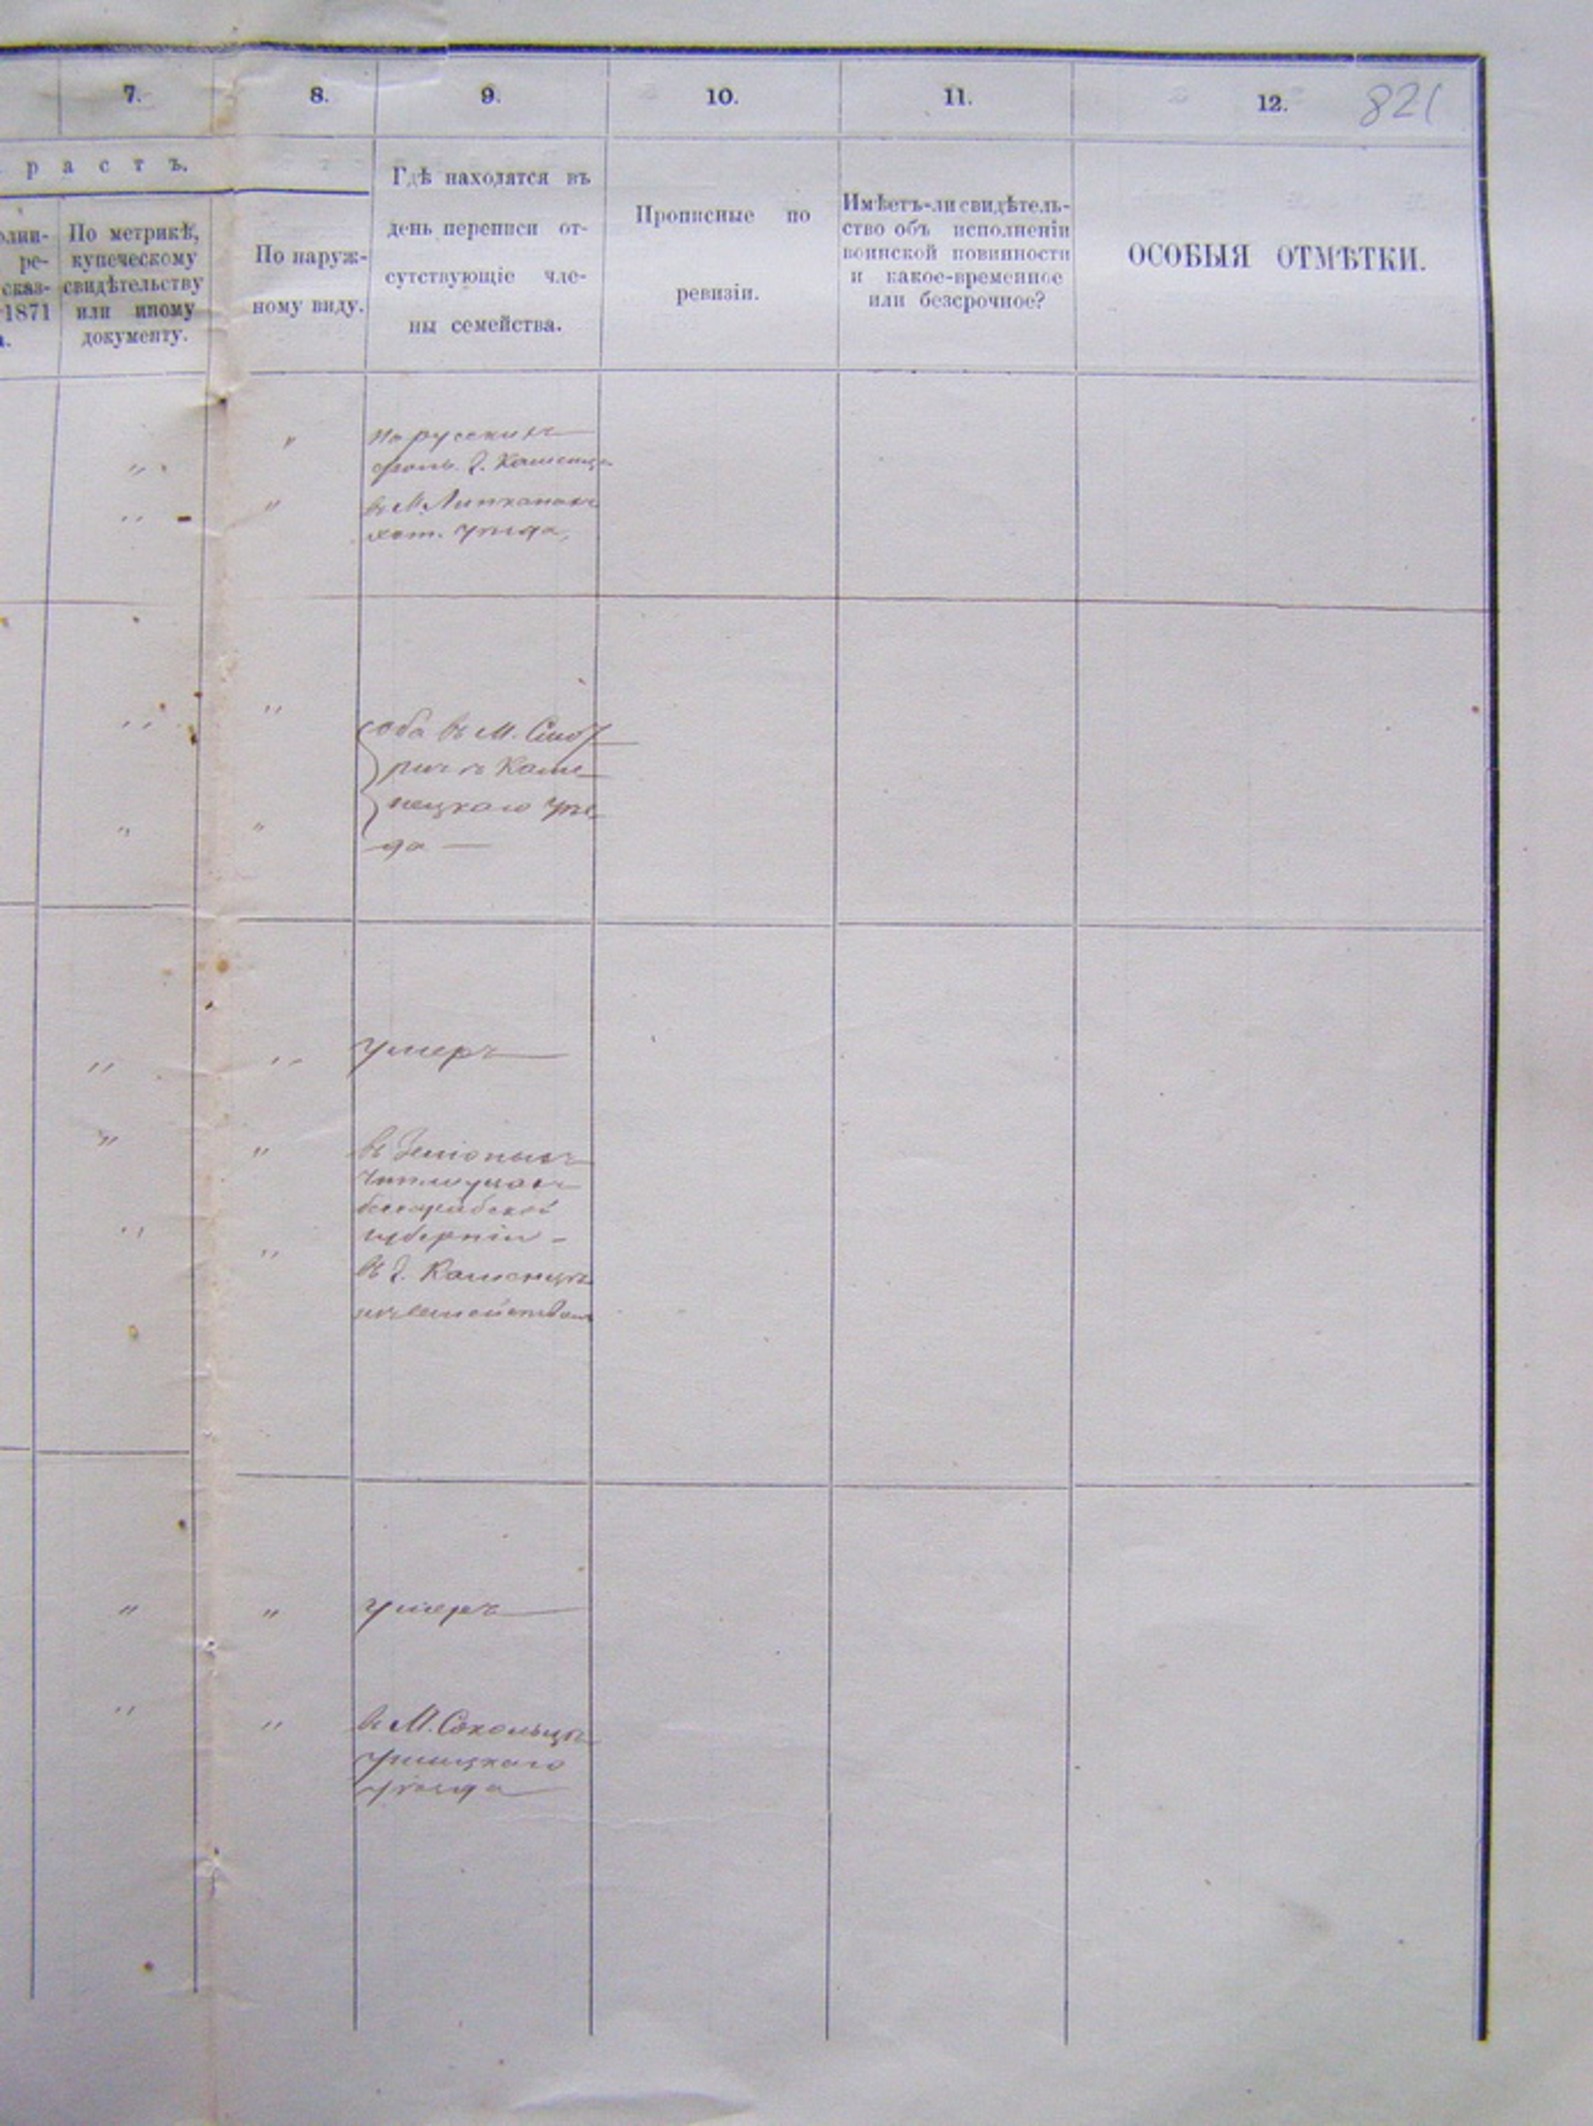 7.
8.
9.
10.
11.
12.
821
р а с т ъ.
По метрикѣ,
купеческому
свидѣтельству
или иному
документу.
1871
По наруж-
ному виду.
Гдѣ находятся въ
день переписи от-
сутствующіе чле-
ны семейства.
Прописные по
ревизіи.
Имѣетъ-ли свидѣтель-
ство объ исполненіи
воинской повинности
и какое-временное
или безсрочное?
ОСОБЫЯ ОТМѢТКИ.
на русскихъ
фольв. г. Каменца
въ М. Липканахъ
хот. уѣзда,
оба въ М. Смот
ричѣ Каме
нецкаго уѣз
да
умеръ
въ
бессарабской
губерніи
въ г. Каменцѣ
умеръ
въ М. Сокольцѣ
Ушицкаго
уѣзда